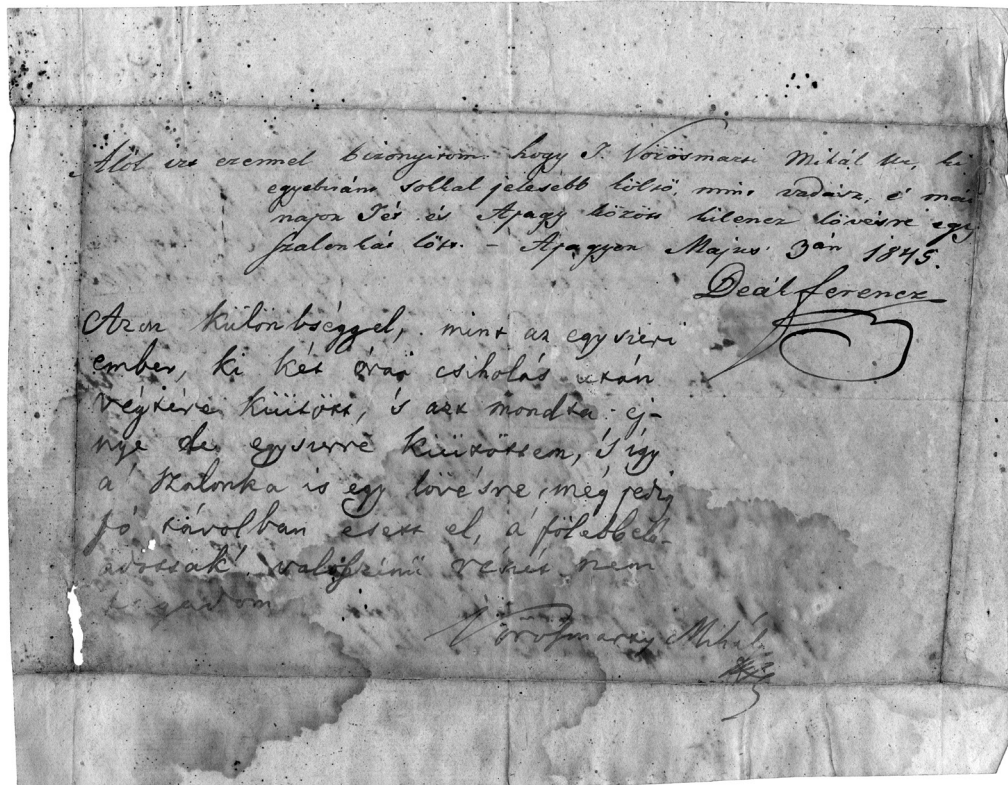 Alól irt ezennel bizonyitom hogy T. Vörösmarti Mihál Ur, ki
egyebiránt sokkal jelesebb költő, mint vadász, é mai
napon Tét és Apagy között kilencz lövésre egy
szalonkát lőtt. – Apagyon Majus 3án 1845.
Deák Ferencz
Azon különbséggel, mint az egyszeri
ember, ki két órai csiholás után
végtére kiütött, és azt mondta: ej-
nye be egyszerre kiütöttem, s így
a' szalonka is egy lövésre, még pedig
jó távolban esett el, a' fölebbeb-
adottak' valószínű részét nem
tagadom
Vörösmarty Mihál